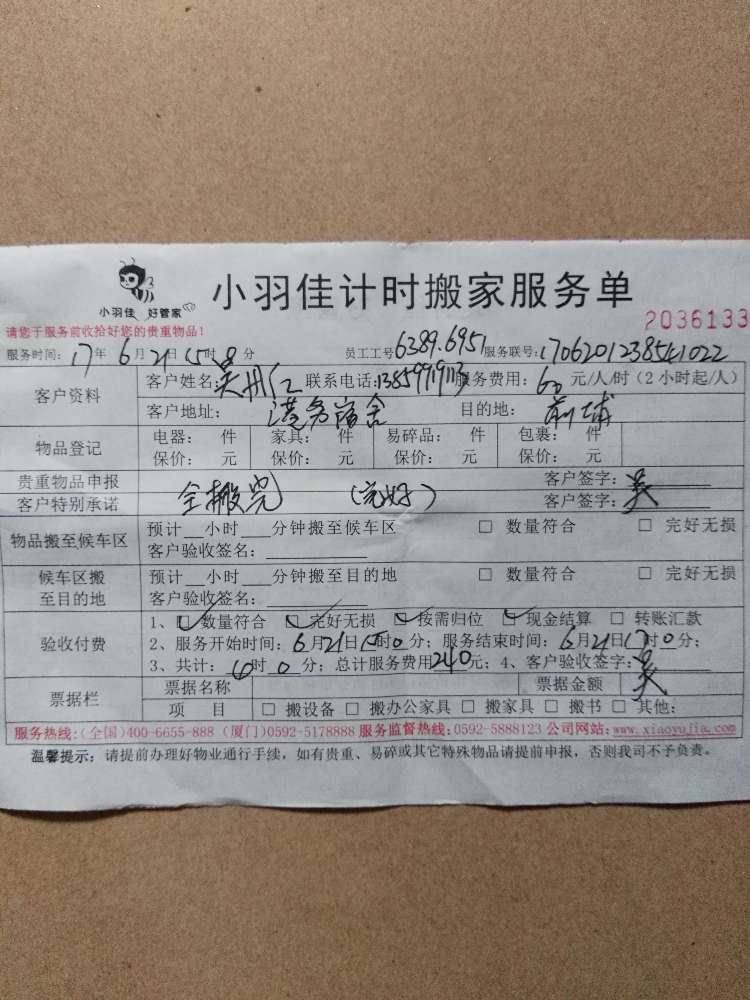 小羽佳 好管家
小羽佳计时搬家服务单
2036133
请您于服务前收拾好您的贵重物品!
服务时间: 17年6月21日15时 分 员工工号6389.6951 服务联号:1706201238541022
客户资料 客户姓名: 联系电话: 服务费用: 60 元/人/时(2小时起/人)
客户地址: 港务宿舍 目的地: 前埔
物品登记 电器: 件 家具: 件 易碎品: 件 包裹: 件
保价: 元 保价: 元 保价: 元 保价: 元
贵重物品申报 客户签字:
客户特别承诺 全搬完 (完好) 客户签字: 吴
物品搬至候车区 预计__小时___分钟搬至候车区 □ 数量符合 □ 完好无损
客户验收签名:
候车区搬至目的地 预计__小时___分钟搬至目的地 □ 数量符合 □ 完好无损
客户验收签名:
验收付费 1、☑数量符合 ☑完好无损 ☑按需归位 ☑现金结算 □ 转账汇款
2、服务开始时间: 6月21日15时0分; 服务结束时间: 6月21日17时0分;
3、共计: 时0分; 总计服务费用240元; 4、客户验收签字: 吴
票据栏 票据名称 票据金额
项 目 □ 搬设备 □ 搬办公家具 □ 搬家具 □ 搬书 □ 其他:
服务热线:(全国)400-6655-888 (厦门)0592-5178888 服务监督热线:0592-5888123 公司网站:www.xiaoyujia.com
温馨提示: 请提前办理好物业通行手续, 如有贵重、易碎或其它特殊物品请提前申报, 否则我司不予负责。